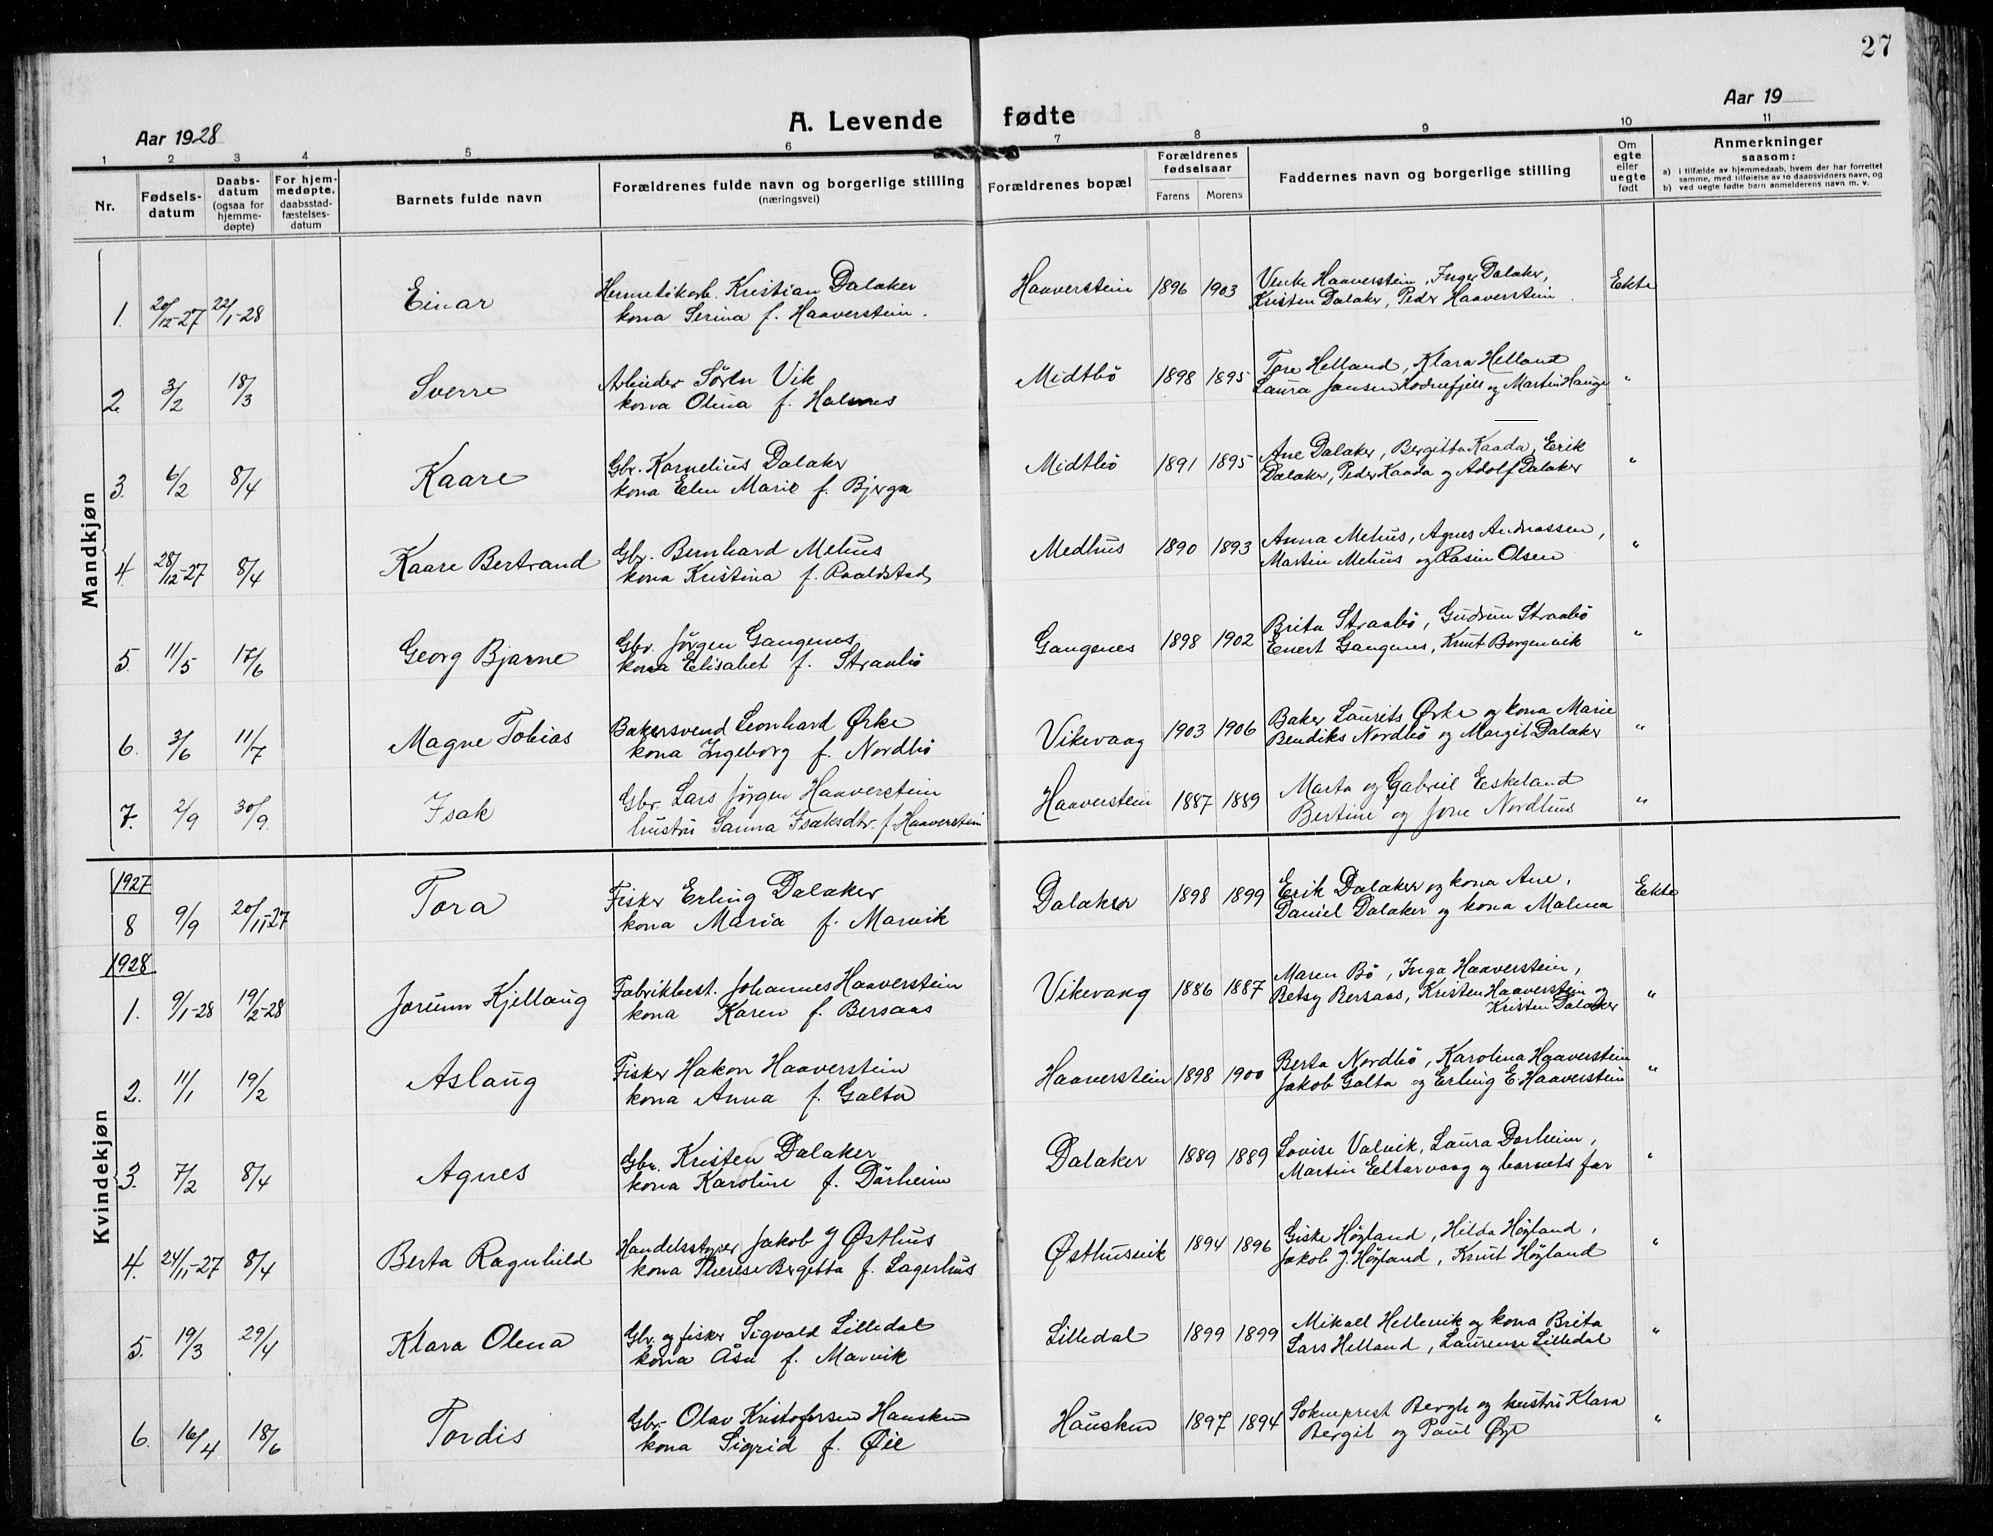 27
Aar 1928
A. Levende fødte
Aar 19
1 2 3 4 5 6 7 8 9 10 11
Nr.
Fødsels-datum
Daabs-datum (ogsaa for hjemme-døpte)
For hjem-medøpte, daabsstad-fæstelses-datum
Barnets fulde navn
Forældrenes fulde navn og borgerlige stilling (næringsvei)
Forældrenes bopæl
Forældrenes fødselsaar
Farens Morens
Faddernes navn og borgerlige stilling
Om egte eller uegte født
Anmerkninger saasom:
a) i tilfælde av hjemmedaab, hvem der har forrettet samme, med tilføielse av to daapsvidners navn, og
b) ved uegte fødte barn anmelderens navn m. v.
Mandkjøn
1. 20/12-27 22/1-28 Einar Hermetikarb. Kristian Dalaker Haaverstein 1896 1903 Venke Haaverstein, Inger Dalaker, Ekte
kona Serina f. Haaverstein. Kristen Dalaker, Peder Haaverstein.
2. 3/2 18/3 Sverre Arbeider Sören Vik Midtbö 1898 1895 Tore Helland, Klara Helland "
kona Olena f. Halsnes Laura Jansen Hodnefjell og Martin Hauge
3. 6/2 8/4 Kaare Gbr. Kornelius Dalaker Midtbö 1891 1895 Ane Dalaker, Bergitta Kaada, Erik "
kona Elen Marie f. Bjerga Dalaker, Peder Kaada og Adolf Dalaker
4. 28/12-27 8/4 Kaare Bertrand Gbr. Bernhard Mehus Medhus 1890 1893 Anna Mehus, Agnes Andreassen, "
kona Kristina f. Raaldstad Martin Mehus og Rasm Olsen
5. 11/5 17/6 Georg Bjarne Gbr. Jörgen Gangenes Gangenes 1898 1902 Brita Straabö, Gudrun Straabö "
kona Elisabet f. Straabö Enert Gangenes, Knut Borgenvik
6. 3/6 11/7 Magne Tobias Bakersvend Leonhard Ørke Vikevaag 1903 1906 Baker Laurits Ørke og kona Marie "
kona Ingeborg f. Nordbö Bendiks Nordbö og Margit Dalaker
7. 2/9 30/9 Isak Gbr. Lars Jörgen Haaverstein Haaverstein 1887 1889 Marta og Gabriel Eskeland "
hustru Sanna Isaksdtr. f. Haaverstein Bertine og Jone Nordhus
Kvindekjøn
1927
8 9/9 20/11-27 Tora Fisker Erling Dalaker Dalaker 1898 1899 Erik Dalaker og kona Ane, Ekte
kona Maria f. Marvik Daniel Dalaker og kona Malena
1928
1. 9/1-28 19/2-28 Jorunn Kjellaug Fabrikbest. Johannes Haaverstein Vikevaag 1886 1887 Maren Bö, Inga Haaverstein, "
kona Karen f. Bersaas Betsy Bersaas, Kristen Haaverstein og
Kristen Dalaker
2. 11/1 19/2 Aslaug Fisker Hakon Haaverstein Haaverstein 1898 1900 Berta Nordbö, Karolina Haaverstein "
kona Anna f. Galta Jakob Galta og Erling E Haaverstein
3. 7/2 8/4 Agnes Gbr. Kristen Dalaker Dalaker 1889 1889 Lovise Valvik, Laura Dorheim, "
kona Karoline f. Dörheim Martin Eltarvaag og barnets far
4. 24/11-27 8/4 Berta Ragnhild Jakob J Østhus Østhusvik 1894 1896 Giske Högland, Hilda Högland, "
kona Therese Bergitta f. Lagerhus Jakob J. Högland, Knut Högland
5. 19/3 29/4 Klara Olena Gbr. og fisker Sigvald Lilledal Lilledal 1899 1899 Mikael Hellevik og kona Brita "
kona Åsa f. Marvik Lars Helland, Laurense Lilledal
6. 16/4 18/6 Tordis Gbr. Olav Kristofersen Hausken Hausken 1897 1894 Sokneprest Bergh og hustru Klara "
kona Sigrid f. Øie Bergit og Paul Øye